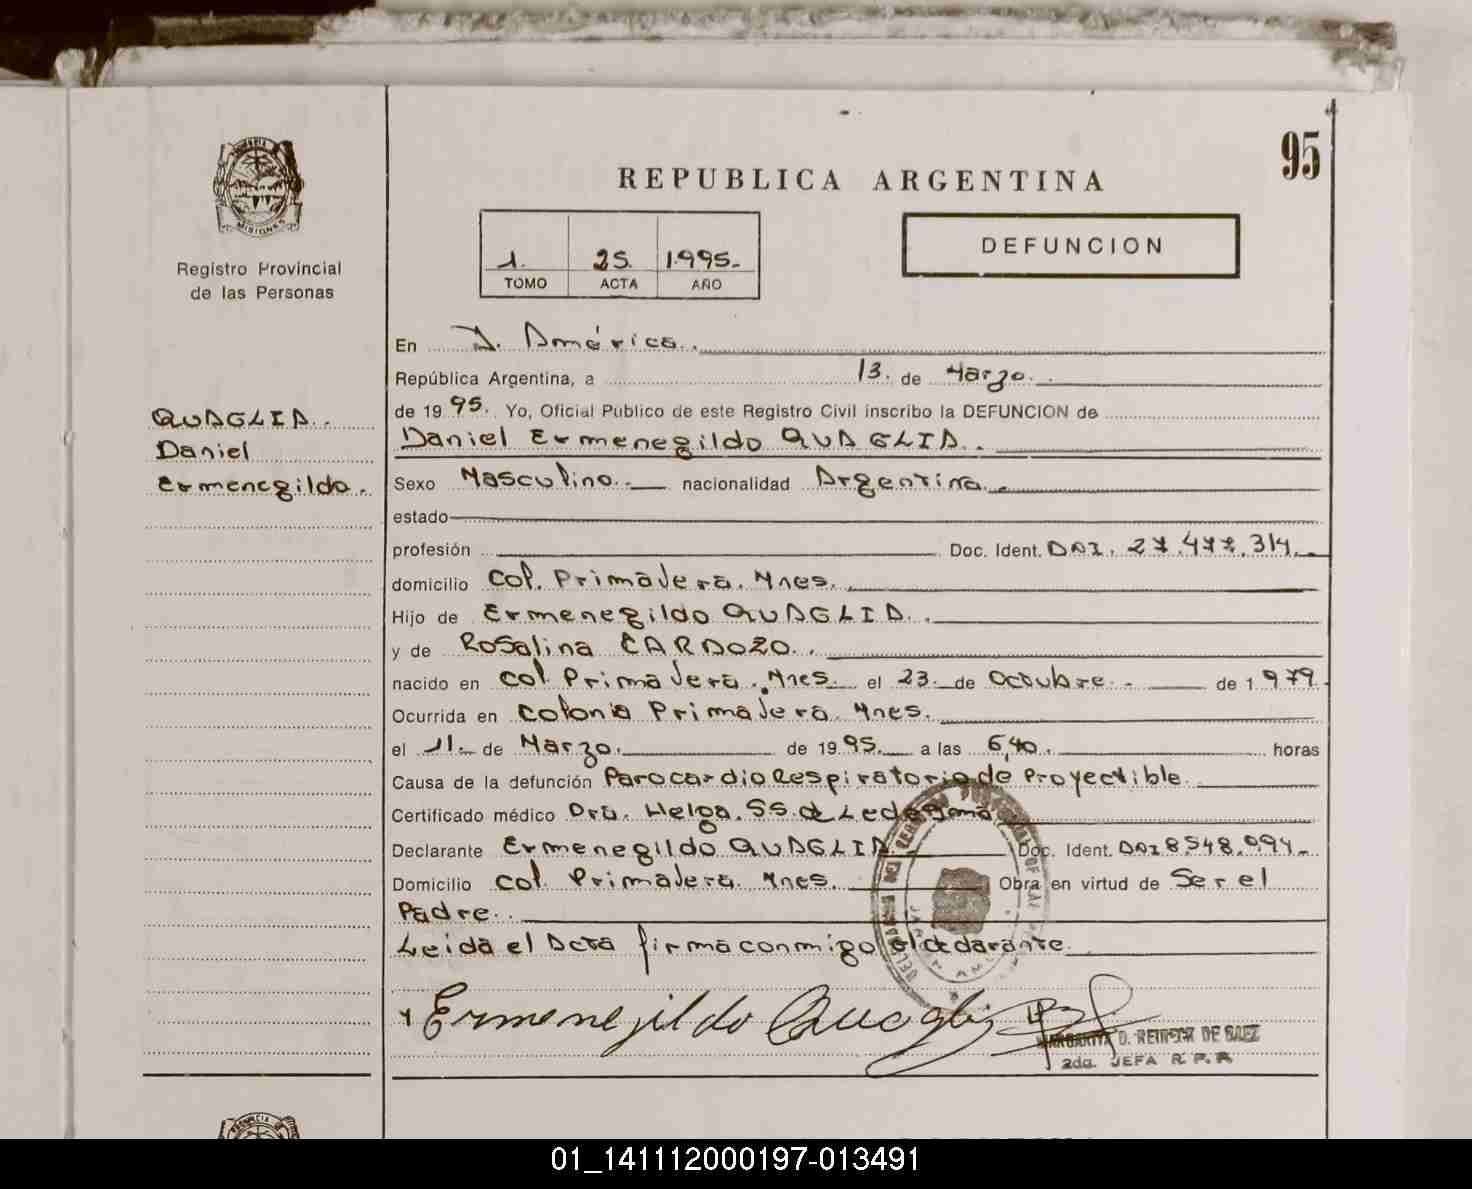 95
REPUBLICA ARGENTINA
PROVINCIA
MISIONES
Registro Provincial
de las Personas
1. 25. 1.995.-
TOMO ACTA AÑO
DEFUNCION
En J. América.
República Argentina, a 13. de Marzo.
de 19 95. Yo, Oficial Publico de este Registro Civil inscribo la DEFUNCION de
Daniel Ermenegildo QUAGLIA.
QUAGLIA.
Daniel
Ermenegildo.
Sexo Masculino.- nacionalidad Argentina.
estado
profesión Doc. Ident. DNI. 27.477.314.
domicilio Col. Primavera. Mnes.
Hijo de Ermenegildo QUAGLIA.
y de Rosalina CARDOZO.
nacido en Col. Primavera. Mnes. el 23. de Octubre. de 1 979.
Ocurrida en Colonia Primavera. Mnes.
el 11. de Marzo. de 19 95. a las 6,40. horas
Causa de la defunción Parocardiorespiratorio de Proyectible.
Certificado médico Dra. Helga. S.S. de Ledesma
Declarante Ermenegildo QUAGLIA. Doc. Ident. DNI 8.548.094.-
Domicilio Col. Primavera. Mnes. Obra en virtud de Ser el
Padre.
Leida el Acta firma conmigo el declarante.
Ermenejildo Quaglia
MARGARITA D. DE BAEZ
2da. JEFA R. P. P.
PROVINCIA
01_141112000197-013491